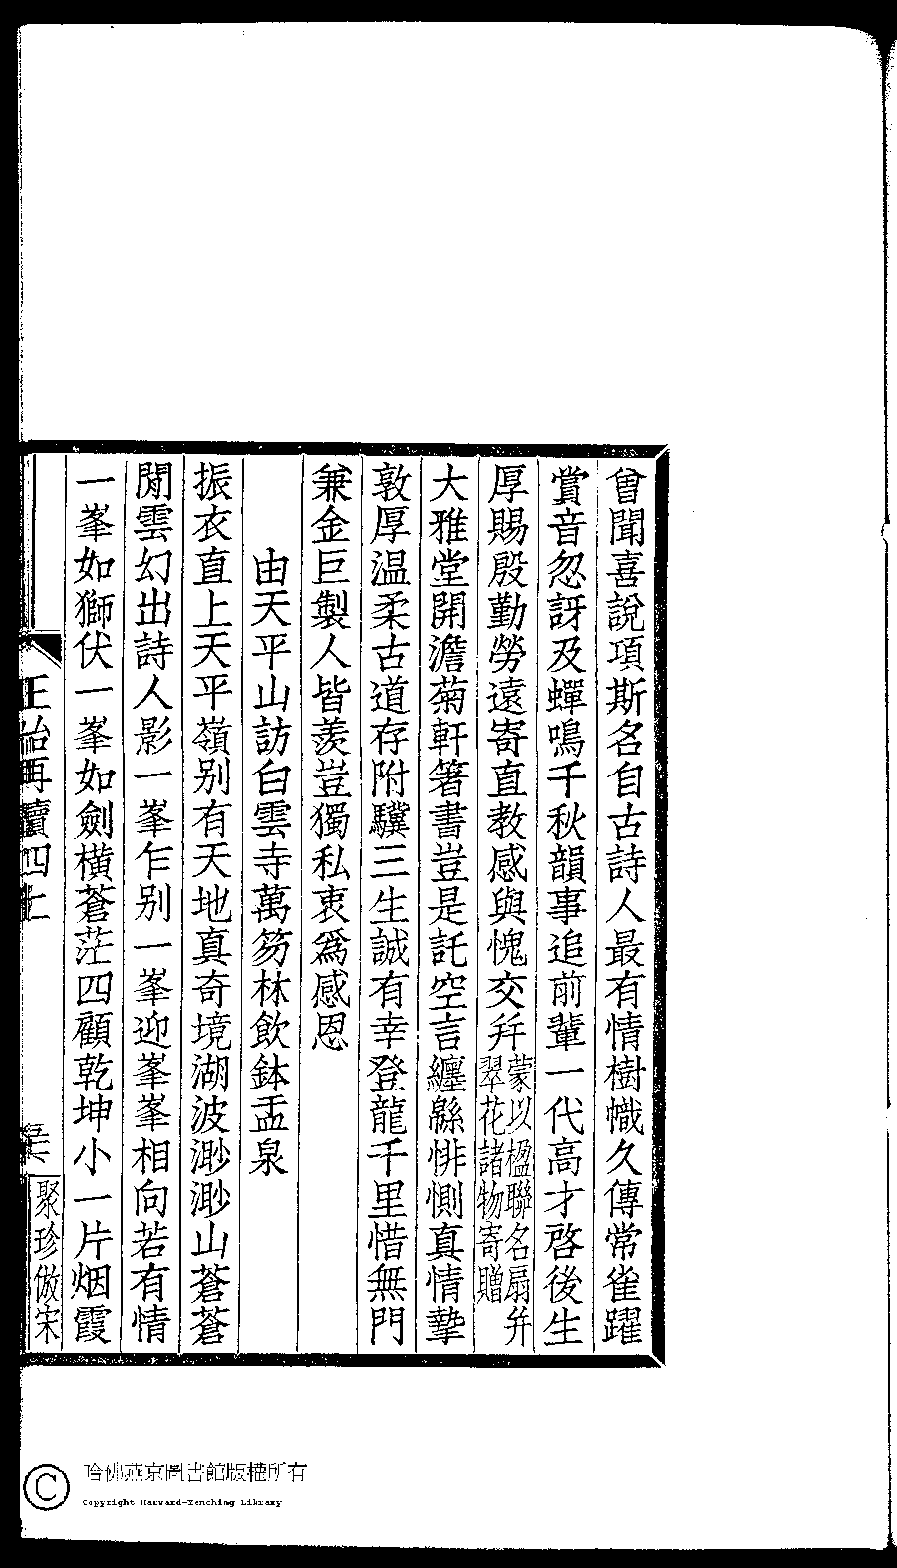 曾聞喜說項斯名自古詩人最有情樹幟久傳常雀躍
賞音忽訝及蟬鳴千秋韻事追前輩一代高才啓後生
厚賜殷勤勞遠寄直教感與愧交幷蒙以楹聯名扇幷
翠花諸物寄贈
大雅堂開澹菊軒箸書豈是託空言纏緜悱惻真情摯
敦厚温柔古道存附驥三生誠有幸登龍千里惜無門
兼金巨製人皆羨豈獨私衷爲感恩
由天平山訪白雲寺萬笏林飲鉢盂泉
振衣直上天平嶺别有天地真奇境湖波渺渺山蒼蒼
閒雲幻出詩人影一峯乍别一峯迎峯峯相向若有情
一峯如獅伏一峯如劍橫蒼茫四顧乾坤小一片烟霞
正始再續四上
聚珍倣宋
哈佛燕京圖書館版權所有
Copyright Harvard-Yenching Library